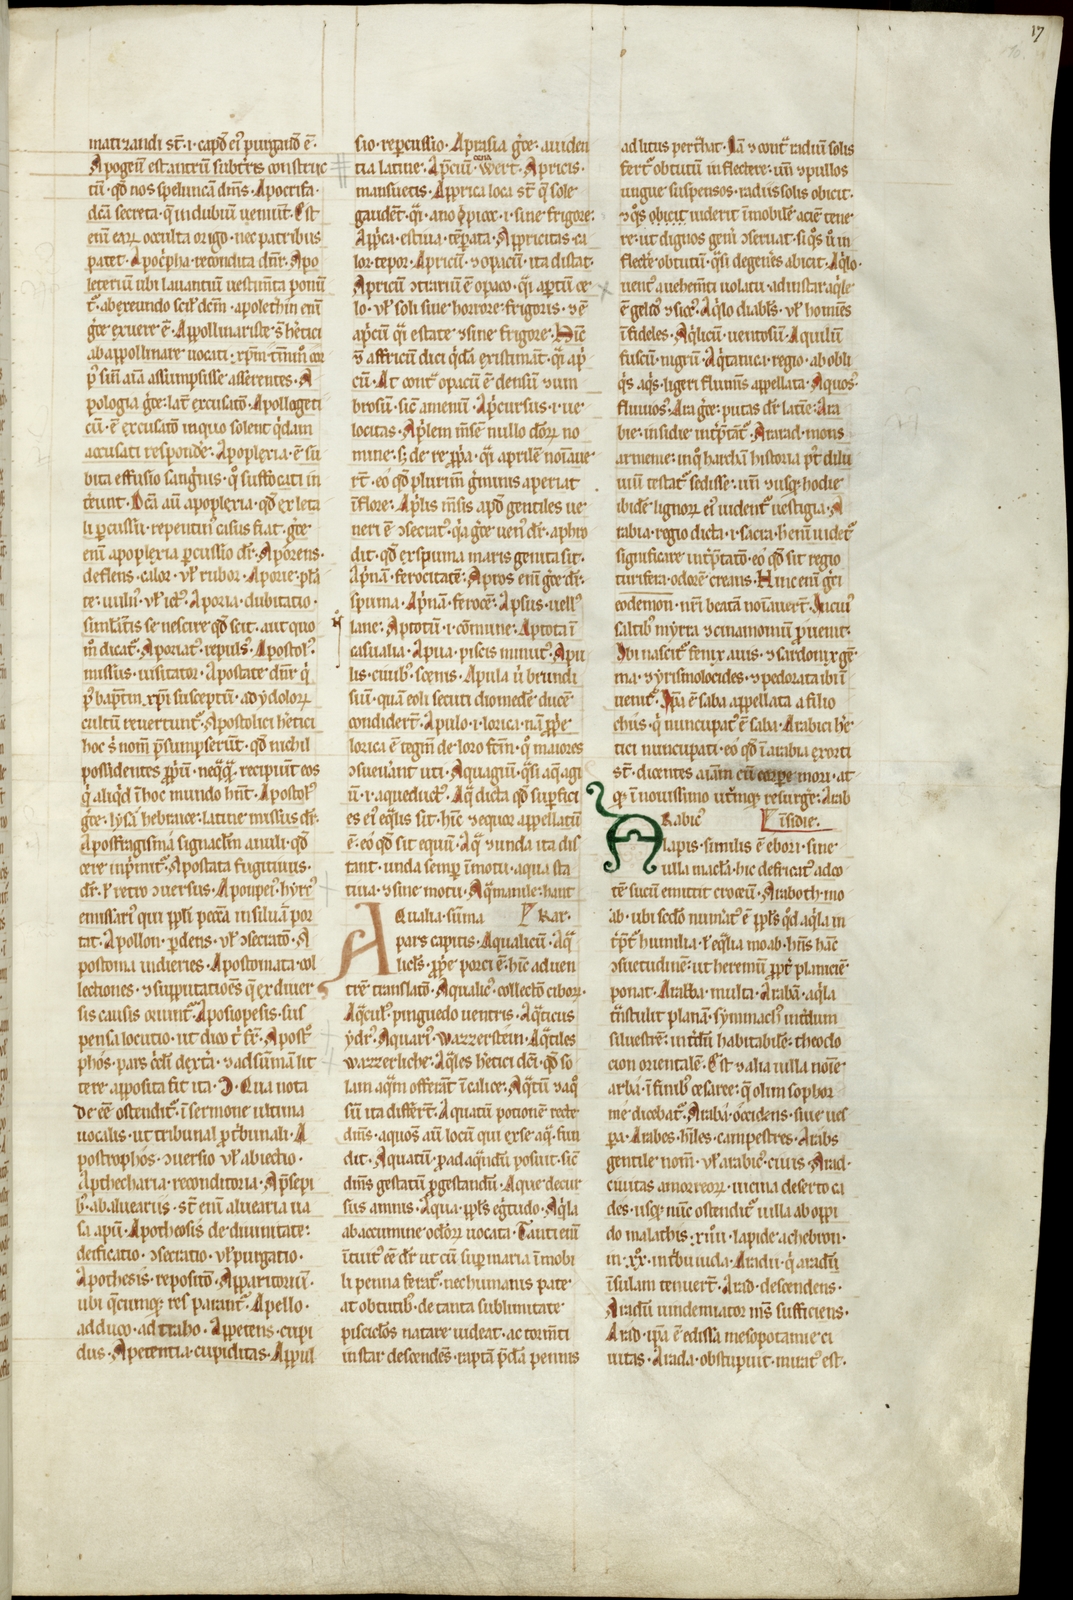 17
matizandi st̄ · i · capd̄ eiꝰ purgand̄ ē ·
Apogeū est antrū subtr̄s construc
tū · qd̄ nos speluncā dm̄s · Apocrifa ·
dc̄a secreta · q̄ in dubiū ueniūt · Est
enī eaꝝ occulta origo · nec patribus
patet · Apoc̄pha · recondita dn̄r · Apo
leteriū ubi lauantiū uestim̄ta ponū
ē exuere ē · Appollinariste · s̄ hetici
ab appollinare uocati · xp̄m tm̄m̊ cor
pꝰ sin̄ aīa assumpsisse asserentes · A
pologia gc̄e · lat̄ excusato · Apollogeti
cū · ē excusato in quo solent q̄dam
accusati respondē · Apoplexia · ē su
bita effusio sanguīs · q̊ suffocati in
tereunt · Dc̄a aū apoplexia · qd̄ ex leta
li p̱cussu · repentinꝰ casus fiat · gc̄e
enī apoplexia p̱cussio dr̄ · Aporens ·
deflens · calor · vl̄ rubor · Aporie · pla
te · uulnꝰ · vl̄ ictꝰ · Aporia · dubitatio ·
simlātis se nescire qd̄ scit · aut quo
m̊ dicat · Aporiatꝰ · repulsꝰ · Apostolꝰ ·
missus · uisitator · Apostate dn̄r q̇
pꝰ bapt̄m xp̄i susceptū · ad ydoloꝝ
cultū reuertunt̄ · Apostolici hetici
hoc s̄ nom̄ p̄sumpserūt · qd̄ nichil
possidentes ꝓp̱ū · neq̄q̄ · recipiūt eos
q̇ aliq̇d ī hoc mundo hn̄t · Apostolꝰ
gc̄e · lysā hebraice · latine missus dr̄ ·
Aposfragismā signaclm̄ anuli · qd̄
cere īprimit̄ · Apostata fugitiuus ·
dr̄ · ł retro ↄuersus · Apompei · hyrꝰ
emissariꝰ qui pp̱li pecc̄a in siluā por
tat · Apollon · p̱dens · vl̄ ↄsecrato · A
postoma · iudieries · Apostomata · col
lectiones · ⁊ supputatiōes q̄ ex diuer
sis causis oriunt̄ · Aposiopesis · sus
pensa locutio · ut dico t̄ fr̄ · Apostꝰ
phos · pars c̄li dext̄a · ⁊ ad sūmā lit
tere apposita fit ita · Ͻ · Qua nota
de ēe ostendit̄ · ī sermone ultima
uocalis · ut tribunal p̱ t̄bunali · A
postrophos · ↄuersio vl̄ abiectio ·
Apthecharia · reconditoria · Ap̄sepi
b · ab aluearus · st̄ enī aluearia ua
sa apiū · Apotheosis · de diuinitate ·
deificatio · ↄsecratio · vl̄ purgatio ·
Apothesis · reposito · Apparitoriū ·
ubi q̄cumq̄ res parant̄ · Apello ·
adduco · ad traho · Appetens · cupi
dus · Apetentia · cupiditas · Appul
sio · rep̱cussio · Aprasia gc̄e · auiden
tia latine · Ap̄ciū · wert · Apricis ·
mansuetis · Apprica loca st̄ q̄ sole
gaudēt · q̄ · apo φριοc · i · sine frigore ·
App̄ca · estiua · tēp̱ata · Appricitas · ca
lor · tepor · Apricū · ⁊ opacū · ita distat ·
Apricū ↄtrariū ē opaco · q̄ · aptū ce
lo · vl̄ soli siue horrore frigoris · ⁊ ē
ap̄cū q̄ · estate ⁊ sine frigore · Hinc
⁊ affricū dici q̇dā existimāt · q̄ · ap̄
cū · At cont̄ opacū ē densū ⁊ um
brosū · sic̄ amenū · Apc̄ursus · i · ue
locitas · Aplem̄ m̄se nullo d̄oꝝ no
mine · s; de re ꝓp̱a · q̄ · aprile noīaue
rt̄ · eo qd̄ plurim̄ gminis aperiat
ī flore · Aplis m̄sis apd̄ gentiles ue
neri ē ↄsecratꝰ · q̇a gc̄e uenꝰ dr̄ · aphro
dit · qd̄ ex spuma maris genita sit ·
Ap̄nā · ferocitatē · Apros enī gc̄e dr̄ ·
spuma · Ap̄nā · ferocē · Apsus · uellꝰ
lane · Aptotū · i · cōmune · Aptota ī
casualia · Apua · piscis minutꝰ · Apu
lis · ciuibꝰ · scenis · Apula ū brundi
siū · quā eoli secuti diomedē ducē
condidert̄ · Apulo · i · lorica · nā ꝓpe
lorica ē tegm̄ de loro fc̄m · q̊ maiores
ↄsueuāt uti · Aquagiū · q̄si aq̄ agi
ū · i · aqueductꝰ · Aq̄ dicta qd̄ sup̱fici
es eiꝰ eq̄lis sit · hinc ⁊ equor appellatū
ē · eo qd̄ sit equū · Aq̄ ⁊ unda ita dis
tant · unda semp̱ ī motu · aqua sta
tiua · ⁊ sine motu · Aq̄manile · hant
Aqualia · sūma var ·
pars capitis · Aqualicū · Aq̄
liclꝰs · ꝓpe porci ē · hinc ad uen
trē translato · Aqualicꝰ · collecto ciboꝝ ·
Aq̄culꝰ · pinguedo uentris · Aq̄ticus
ydrꝰ · Aquariꝰ · wazzerstein · Aq̄tiles
wazzerliche · Aq̄les hetici dc̄i · qd̄ so
lam aq̄m offerāt ī calice · Aq̄tū ⁊ aqꝰ
sū ita differt̄ · Aquatū potionē recte
dm̄s · aquosꝰ aū locū qui ex se aq̄ fun
dit · Aquatū · p̱ ad aq̄ndū posuit · sic̄
dm̄s gestatū p̱ gestandū · Aque decur
sus amnis · Aqua · pp̱ls egrudo · Aq̄la
ab accumine oclōꝝ uocata · Tanti enī
ītuitꝰ ēe dr̄ ut cū sup̱ maria īmobi
li penna ferat̄ · nec humanis pate
at obtutibꝰ · de tanta sublimitate
pisciclos natare uideat · ac torm̄ti
instar descendēs · raptā p̄dā pennis
ad litus p̱t̄hat · Nā ⁊ cont̄ radiū solis
fert̄ obtutū īn flectere · uñ ⁊ pullos
ungue suspensos · radiis solis obicit ·
⁊ q̇s obicit uiderit īmobilē aciē tene
re · ut dignos gen̄i ↄseruat · si q̇s ū in
flectē obtutū · q̄si degen̄es abicit · Aq̄lo
uentꝰ a uehem̄ti uolatu · ad instar aq̄le
ē gelidꝰ ⁊ siccꝰ · Aq̄lo diablꝰs · vl̄ homīes
īfideles · Aq̄licū · uentosū · Aquilū
fuscū · nigrū · Aq̄tanica · regio · ab obli
q̇s aq̇s · ligeri flumīs appellata · Aquosꝰ
fluuiosꝰ · Ara gc̄e · putas dr̄ latine · Ara
bie · insidie · int̄p̱tat̄ · Ararad · mons
armenie · in q̊ harchā historia p̱t dilu
uiū testat̄ sedisse · uñ ⁊ usq̄ hodie
ibidē lignoꝝ eiꝰ uident̄ uestigia · A
rabia · regio dicta · i · sacra · h enī uidet̄
significare int̄p̱tato · eo qd̄ sit regio
turifera · odore creans · Hinc enī gc̄i
eodemon · nr̄i beatā noīauert̄ · In cuiꝰ
saltibꝰ myrra ⁊ cinamomū p̱uenit ·
Ibi nascit̄ fenix auis · ⁊ sardonix gē
ma · ⁊ yrismolocides · ⁊ pedorata ibi ī
uenit̄ · Ip̄a ē saba appellata a filio
chus · q̇ nuncupatꝰ ē saba · Arabici he
tici nuncupati · eo qd̄ ī arabia exorti
st̄ · dicentes aīam cū corpe mori · at
q̄ · ī nouissimo ut̄mq̄ resurgē · Arab
Arabicꝰ īsidie ·
lapis · similis ē ebori · sine
ulla macl̄a · hic defricatꝰ adeo
tē sucū emittit croceū · Araboth · mo
ab · ubi sedo numat̄ ē pp̱ls q̇d aq̄la in
t̄p̱t̄ humilia · ł eq̄lia moab · hn̄s hanc
ↄsuetudinē · ut heremū ꝓpt̄ planiciē
ponat · Arabba · multa · Arabā · aq̄la
t̄nstulit planā · symmachꝰ int̄dum
siluestrē · int̄dū habitabilē · theodo
cion orientalē · Est ⁊ alia uilla noīe
arba · ī finibꝰ cesaree · q̄ olim sophor
me dicebat̄ · Arabā · occidens · siue ues
pa · Arabes · hiles · campestres · Arabs
gentile nom̄ · vl̄ arabicꝰ · ciuis · Arad ·
ciuitas amorreoꝝ · uicina deserto ca
des · usq̄ nunc ostendit̄ uilla ab oppi
do malathis · xiiii · lapide · a chebron ·
in · xx · in tribu iuda · Aradii · q̇ aradū
īsulam tenuert̄ · Arad · descendens ·
Aradū uindemiator m̄s sufficiens ·
Arad · ip̄a ē edissa mesopotamie ci
uitas · Arada · obstupuit · mirat̄ est ·